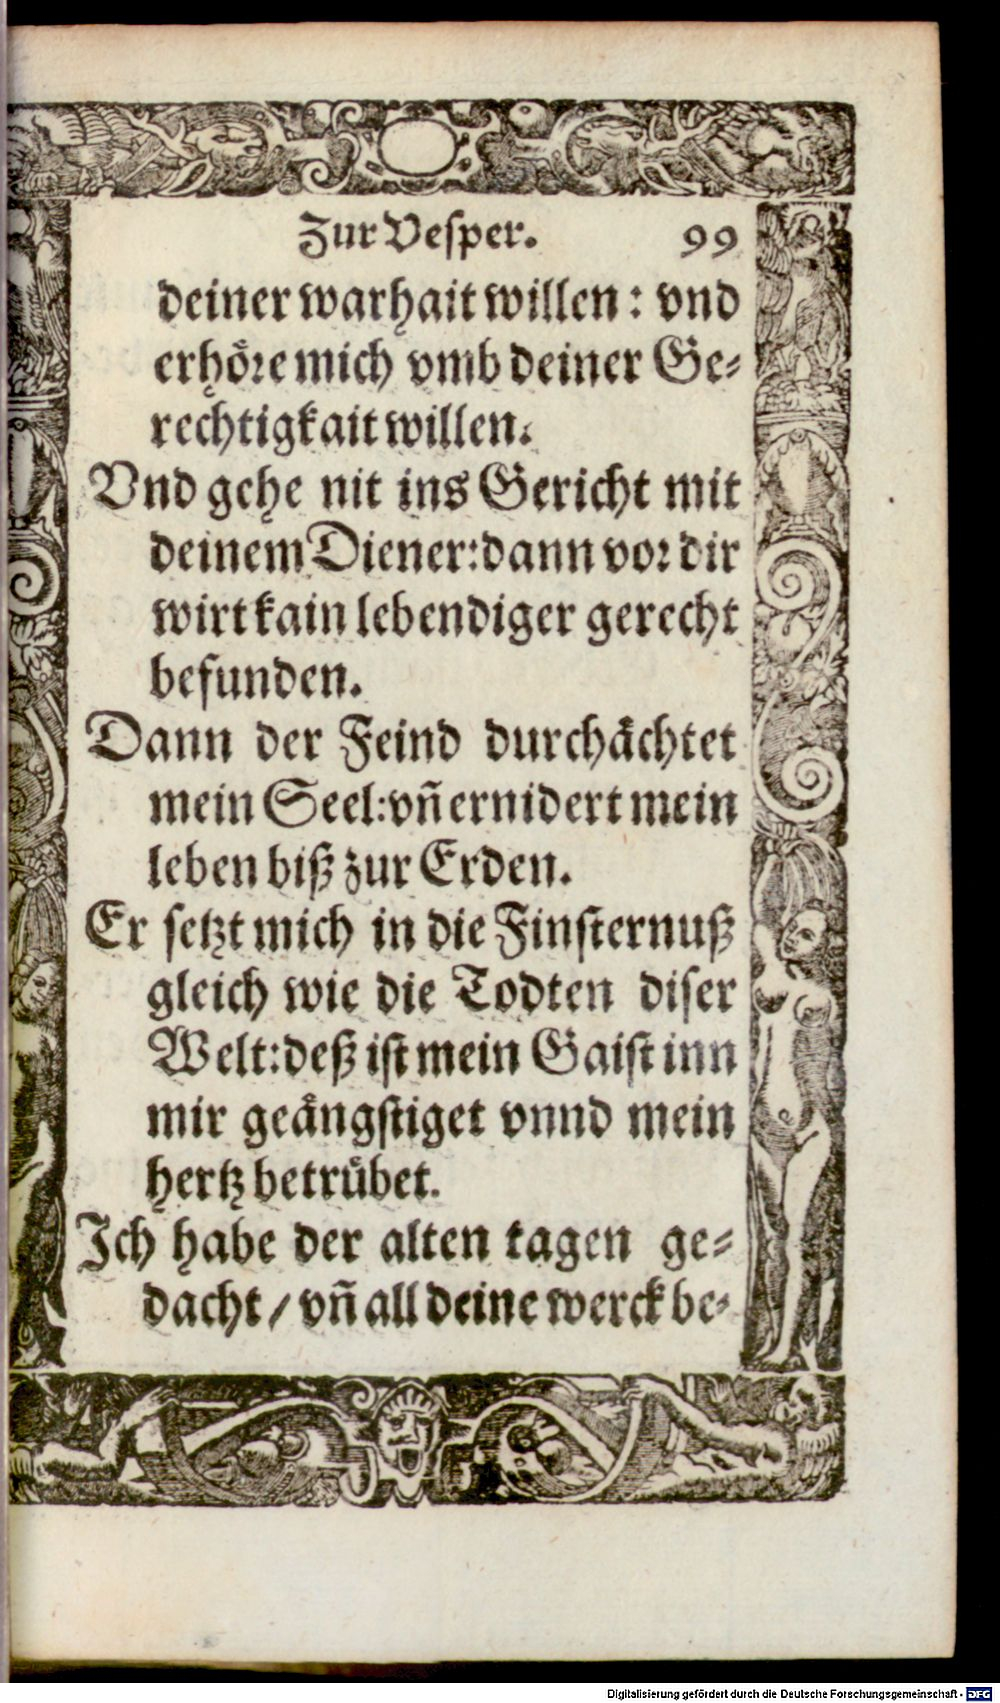 Zur Vesper. 99
deiner warhait willen: vnd
erhöre mich vmb deiner Ge-
rechtigkait willen.
Vnd gehe nit ins Gericht mit
deinem Diener: dann vor dir
wirt kain lebendiger gerecht
befunden.
Dann der Feind durchächtet
mein Seel: vñ ernidert mein
leben biß zur Erden.
Er setzt mich in die Finsternuß
gleich wie die Todten diser
Welt: deß ist mein Gaist inn
mir geängstiget vnnd mein
hertz betrübet.
Ich habe der alten tagen ge-
dacht / vñ all deine werck be-
Digitalisierung gefördert durch die Deutsche Forschungsgemeinschaft - DFG